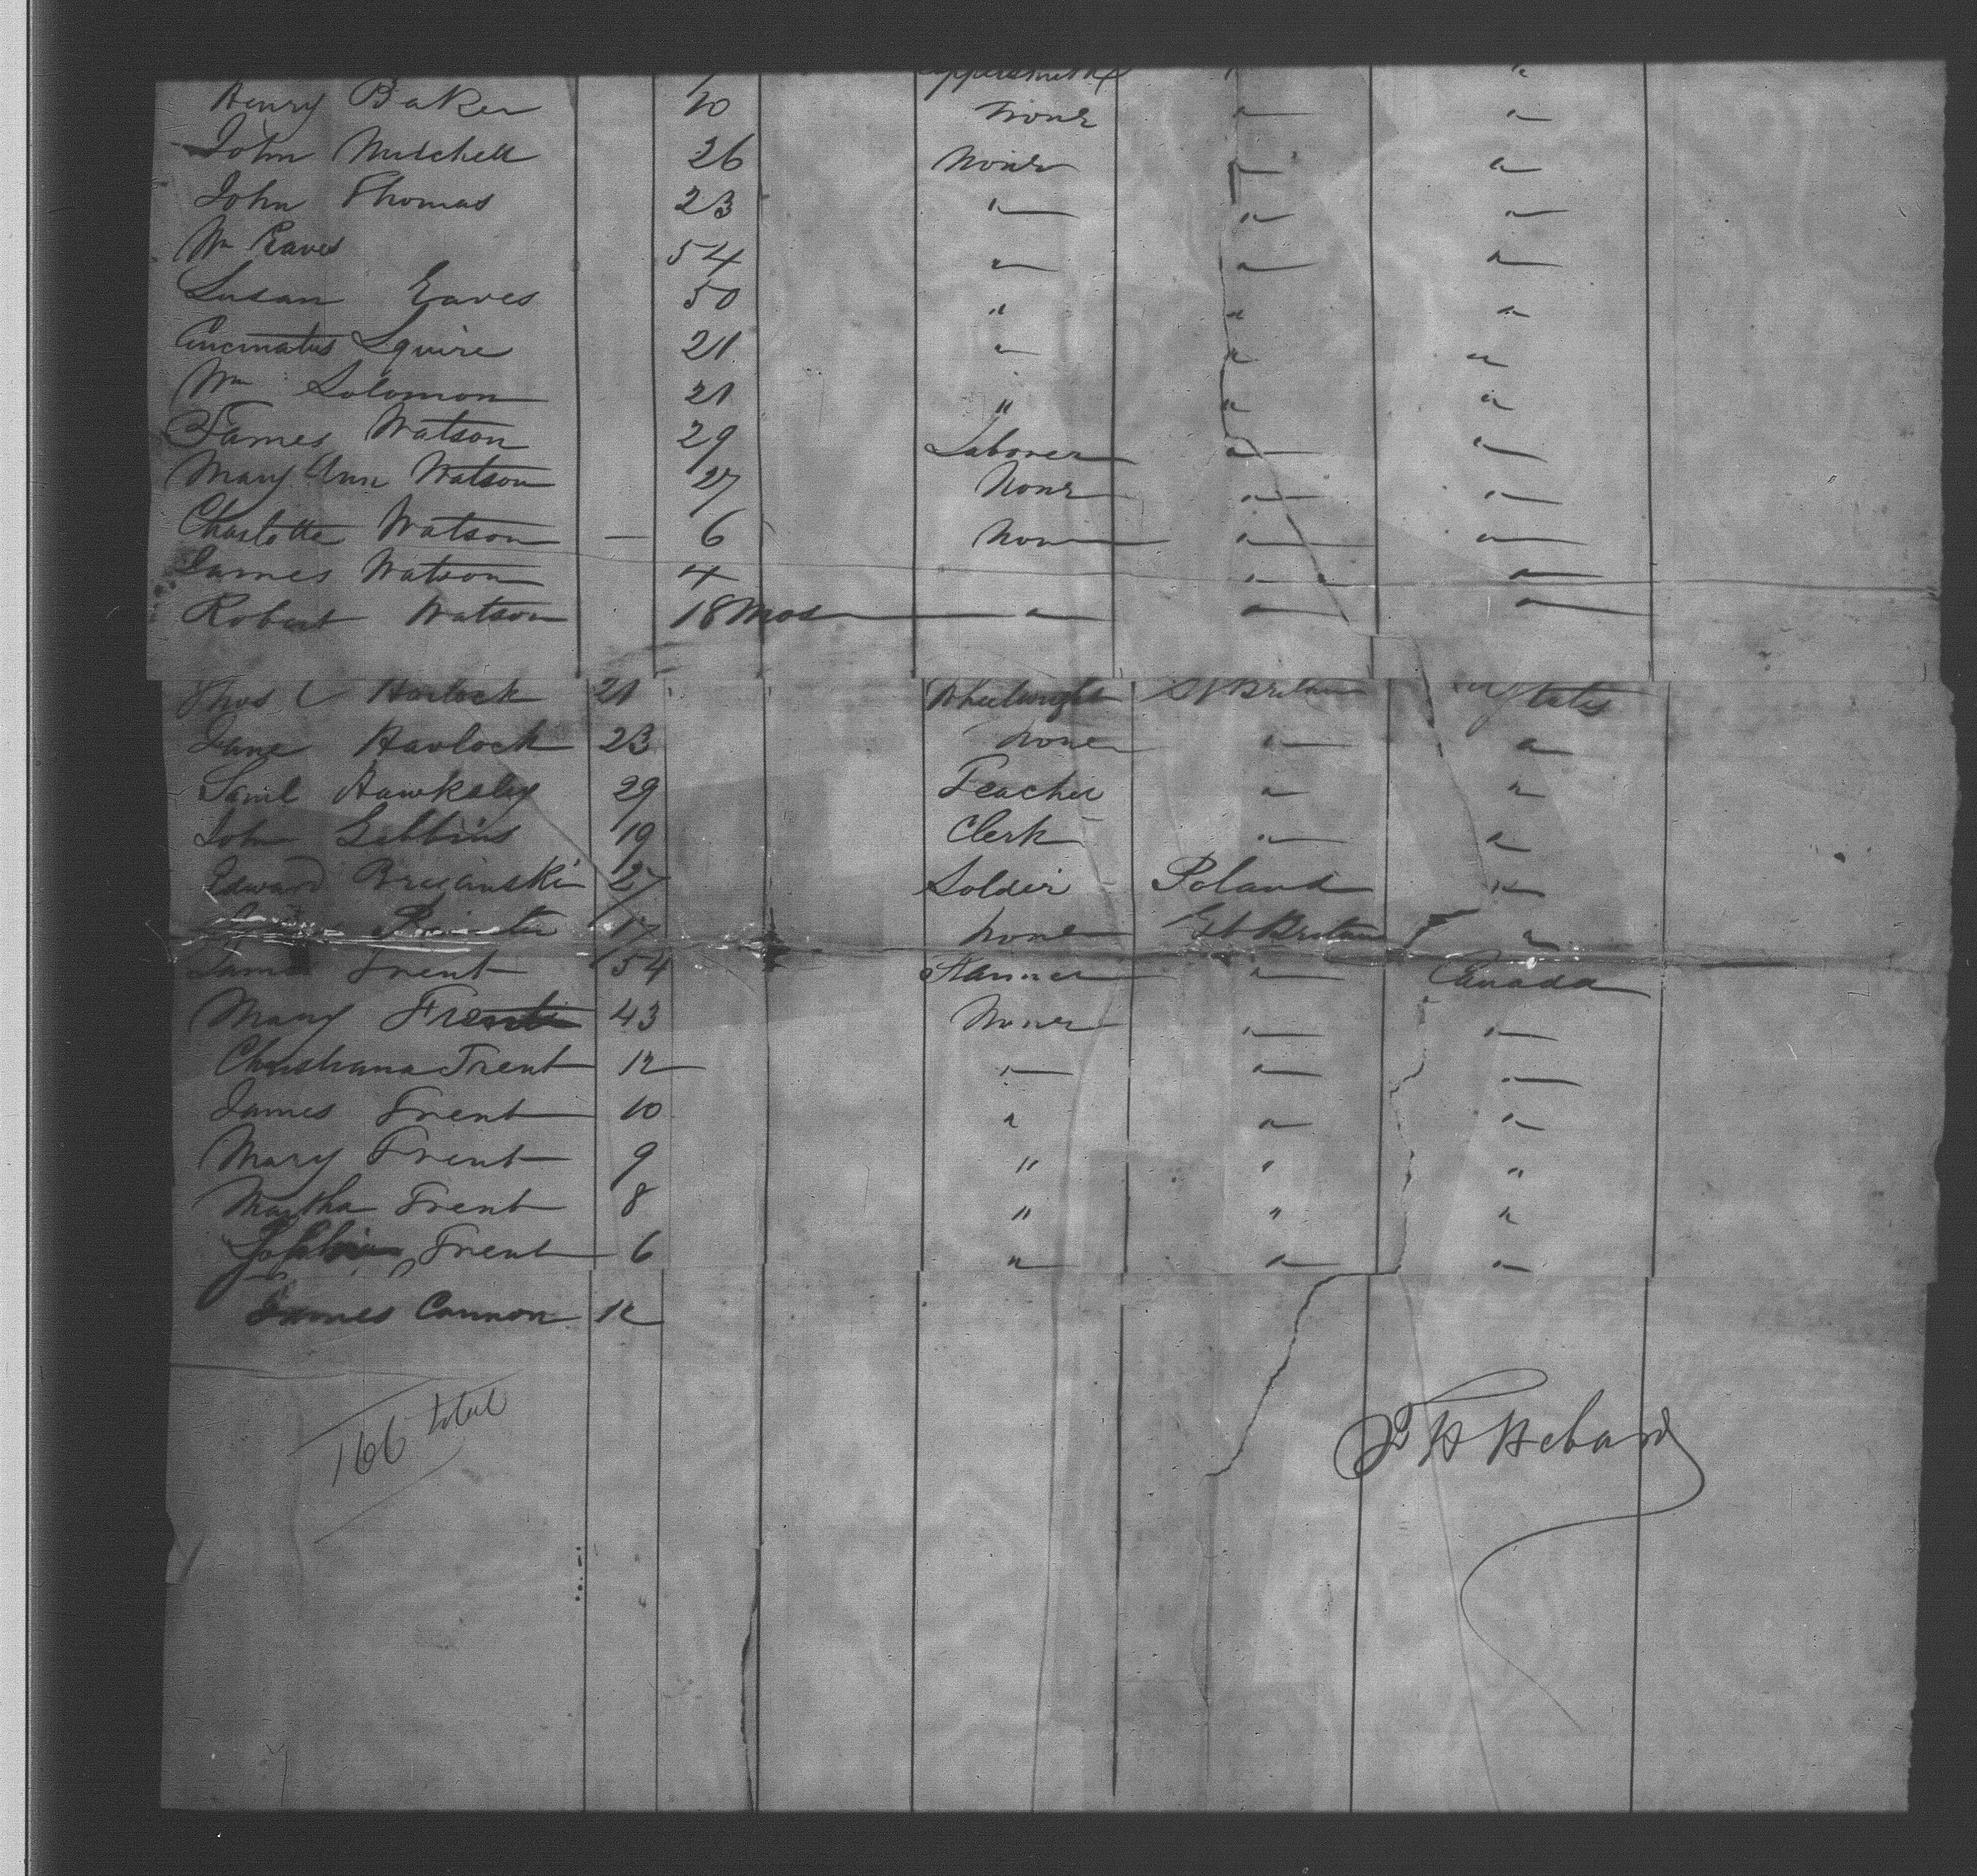 Henry Baker 10 none " "
John Mitchell 26 None " "
John Thomas 23 " " "
Wm Eaves 54 " " "
Susan Eaves 50 " " "
Cincinatus Squire 21 " " "
Wm Solomon 21 " " "
James Watson 29 Laborer " "
Mary Ann Watson 27 None " "
Charlotte Watson — 6 None " "
James Watson 4 " "
Robert Watson 18 Mos " " "
Thos Havlock 21 Wheelwright Gt Britain States
Jane Havlock 23 none " "
Saml Hawksley 29 Teacher " "
John Gibbins 19 Clerk " "
Edward 27 Soldier Poland "
17 none Gt Britain "
James Trent 54 " Canada
Mary Trent 43 None " "
Christiana Trent 12 " " "
James Trent 10 " " "
Mary Trent 9 " " "
Martha Trent 8 " " "
Trent 6 " " "
James Cannon 12
166 total
Hebard